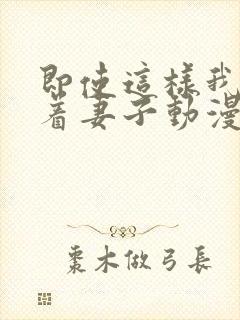 即使這樣我
着妻子動漫
棗木做弓長